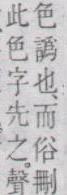 色譌也、而俗刪
此色字先之。聲